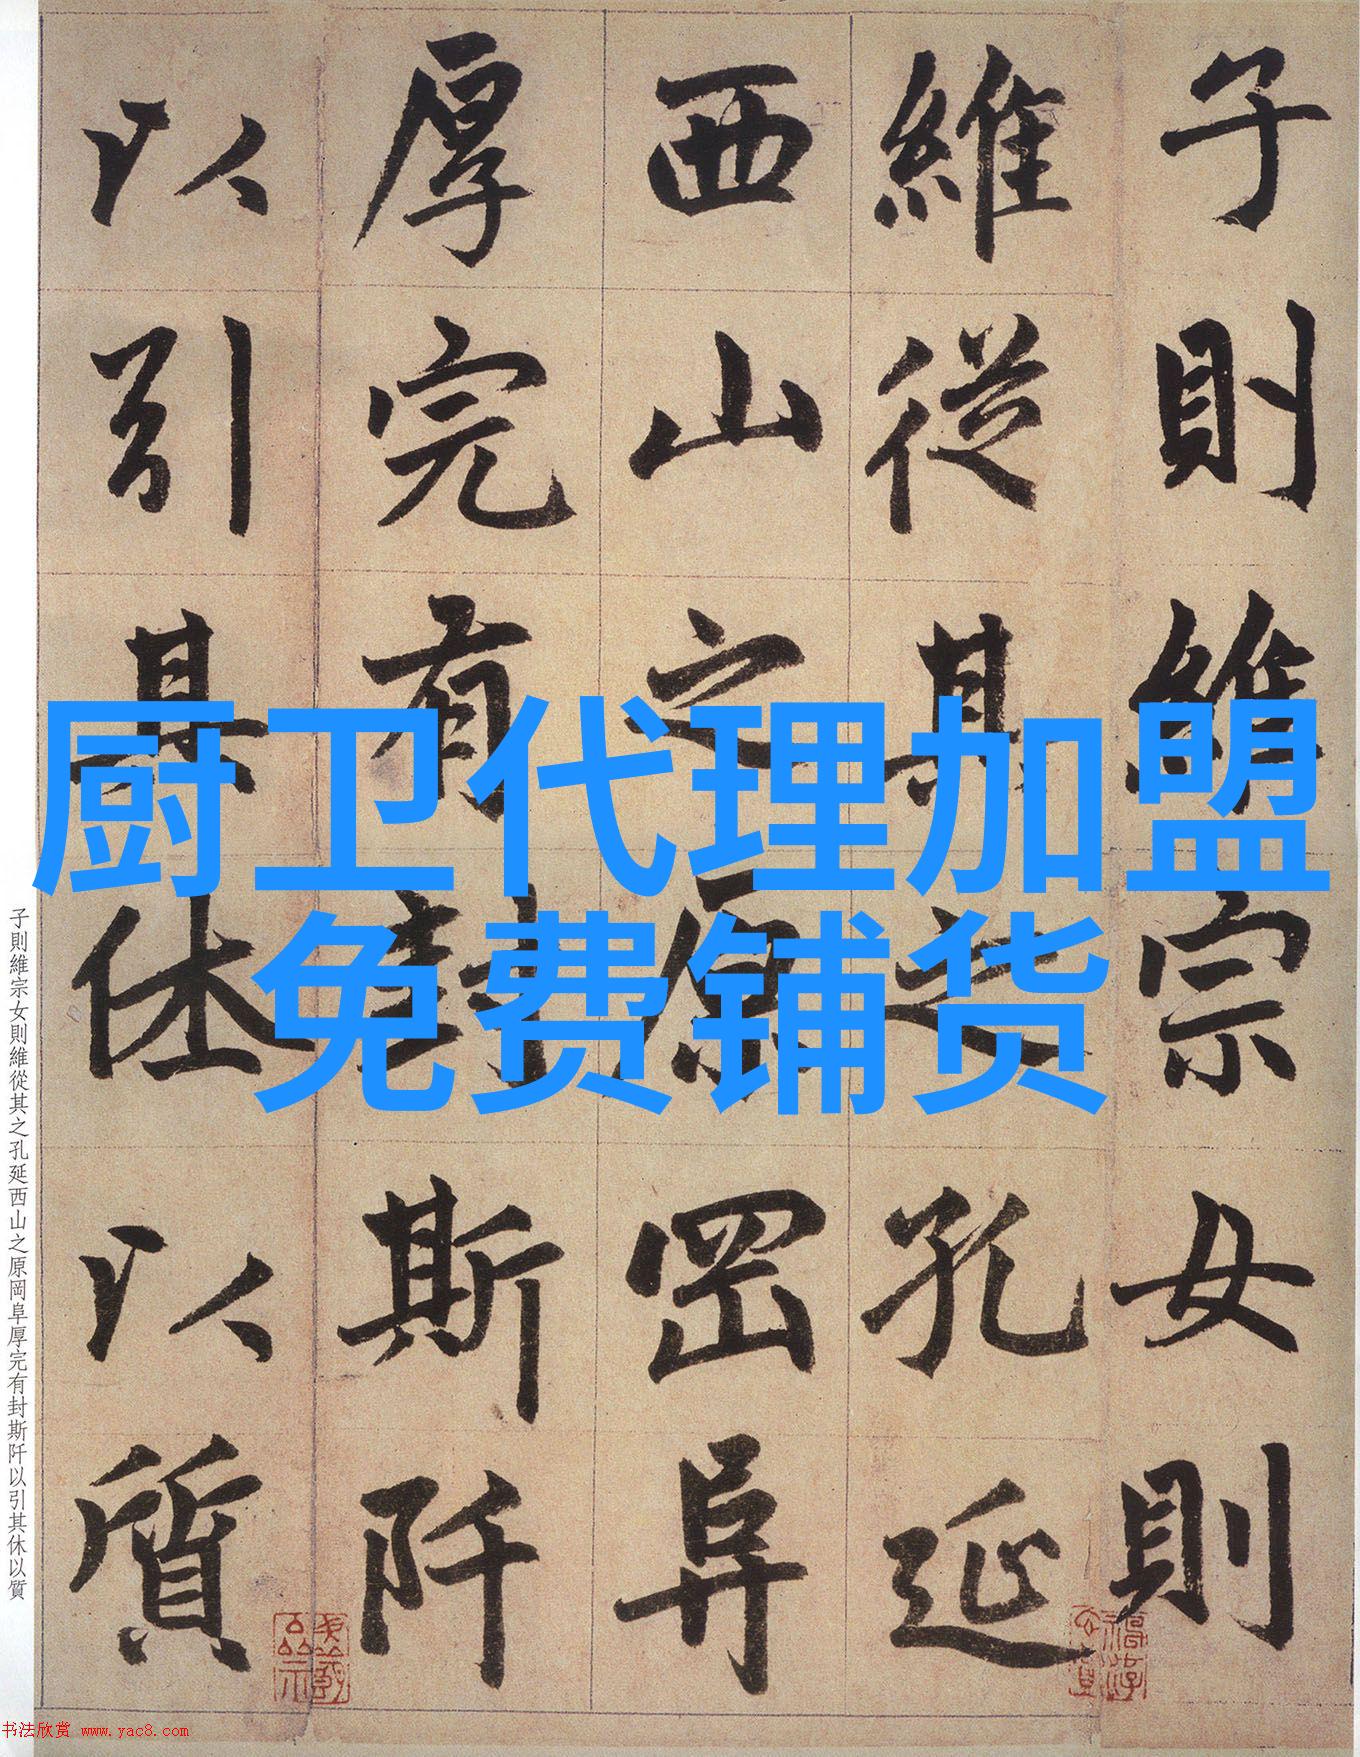 子則維宗女則
維從其之孔延
西山之原岡阜
厚完有封斯阡
以引其休以質
厨卫代理加盟
免费铺货
子則維宗女則維從其之孔延西山之原岡阜厚完有封斯阡以引其休以質
书法欣赏 www.yac8.com